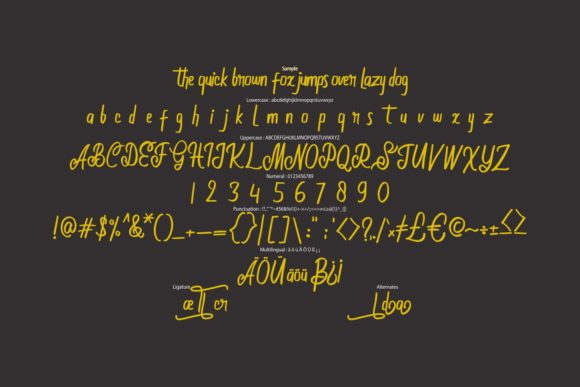 Sample
the quick brown fox jumps over lazy dog
Lowercase : abcdefghijklmnopqrstuvwxyz
a b c d e f g h i j k l m n o p q r s t u v w x y z
Uppercase : ABCDEFGHIJKLMNOPQRSTUVWXYZ
ABCDEFGHIJKLMNOPQRSTUVWXYZ
Numeral : 0123456789
1 2 3 4 5 6 7 8 9 0
Punctuation :
!@#$%^&*()_+-={}|[]\:";'<>?,./×≠£€@~÷±≤≥
Multilingual : ä ö ü Ä Ö Ü ß ¿ ¡
ÄÖÜ äöü ß¿¡
Ligature
æ tt cr
Alternates